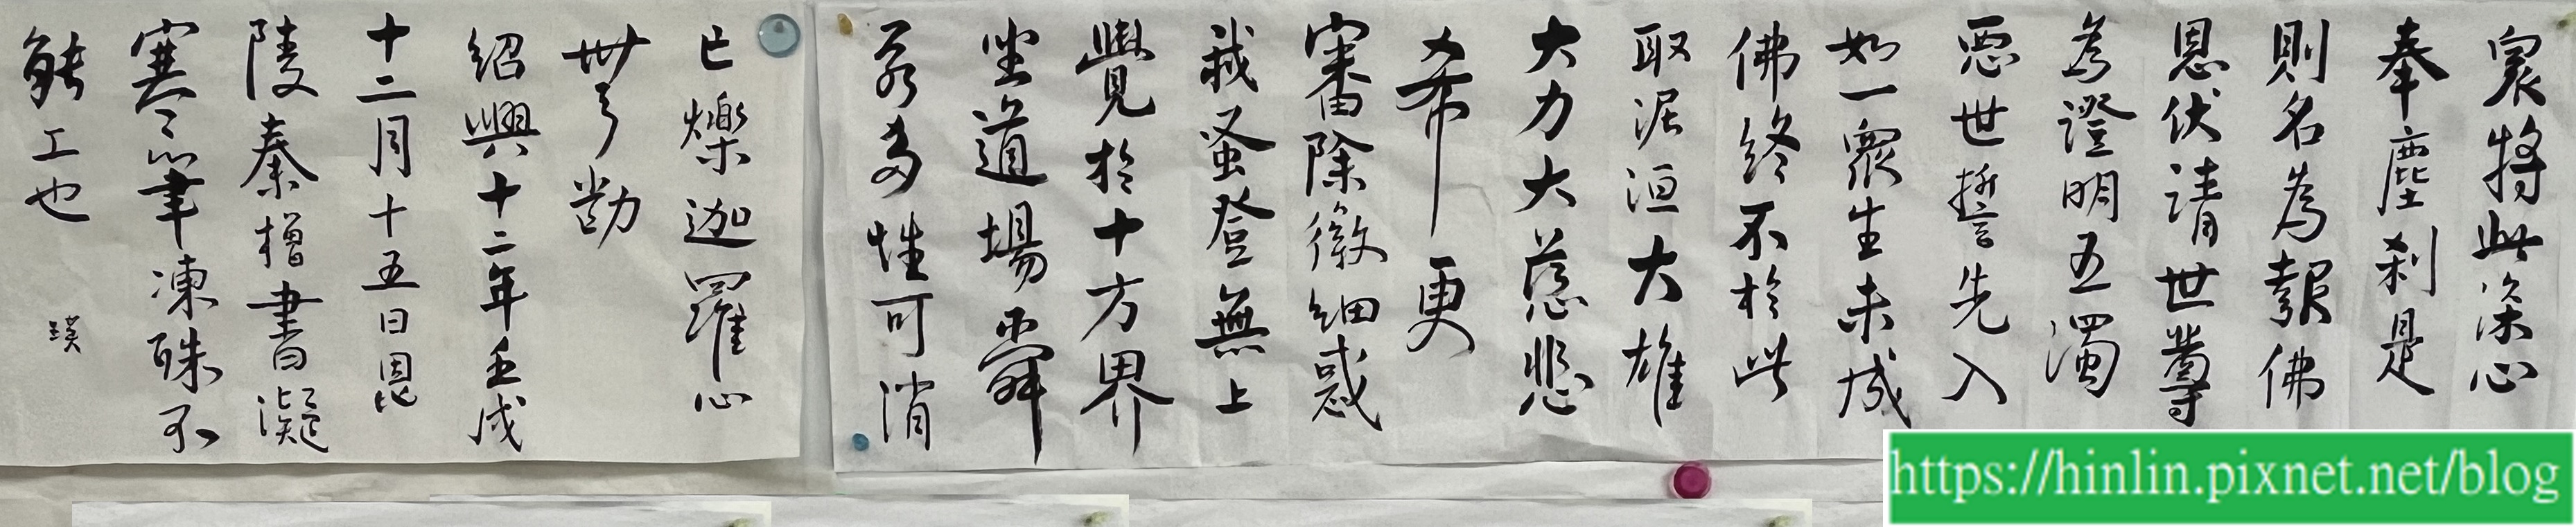 衆將此深心
奉塵剎是
則名為報佛
恩伏請世尊
為證明五濁
惡世誓先入
如一眾生未成
佛終不於此
取泥洹大雄
大力大慈悲
希更
審除微細惑
我蚤登無上
覺於十方界
坐道場舜
若多性可消
亡爍迦羅心
紹興十二年壬戌
十二月十五日恩
陵秦檜書凝
寒筆凍殊不
能工也 璞
https://hinlin.pixnet.net/blog